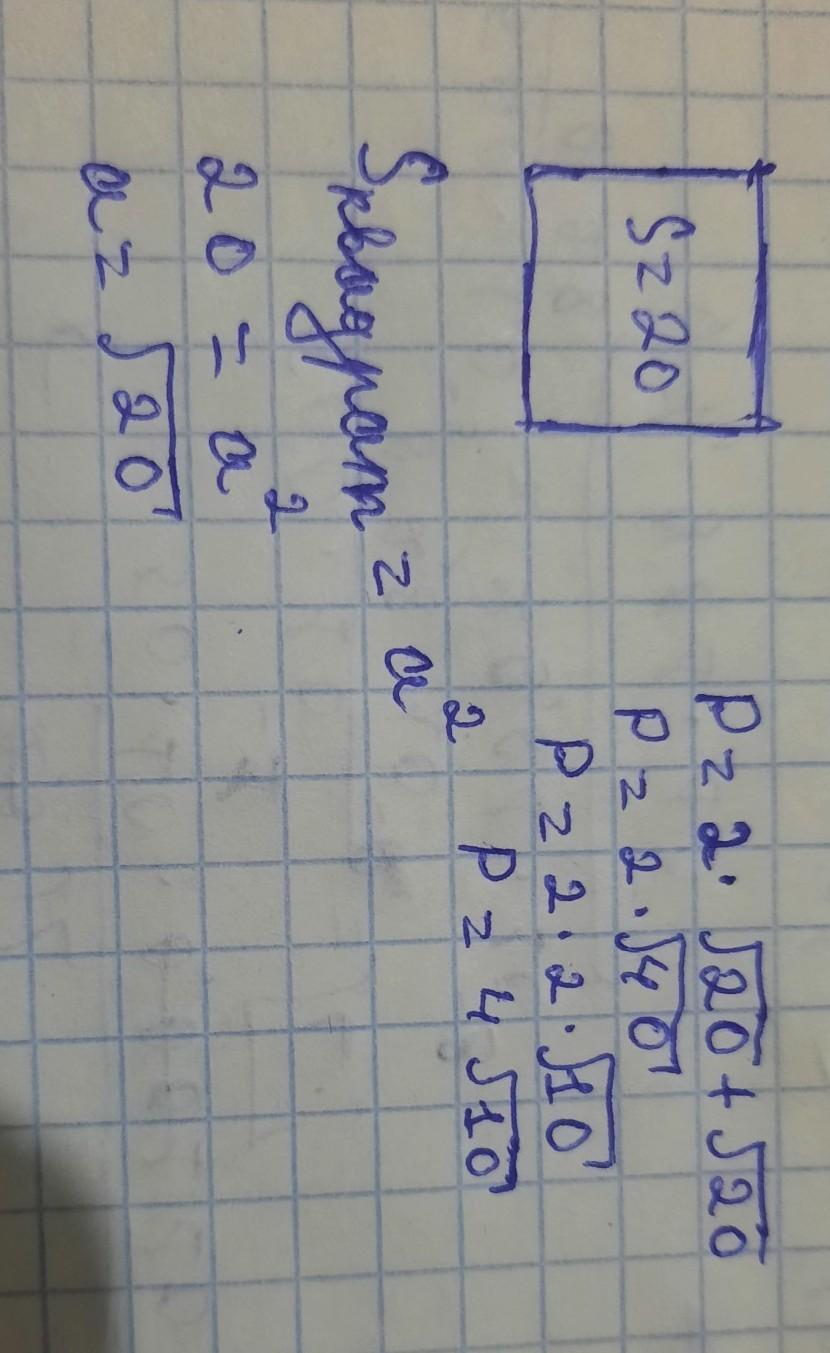 S = 20
Sквадрат = a²
20 = a²
a = √20
P = 2 · √20 + √20
P = 2 · √40
P = 2 · 2 · √10
P = 4√10